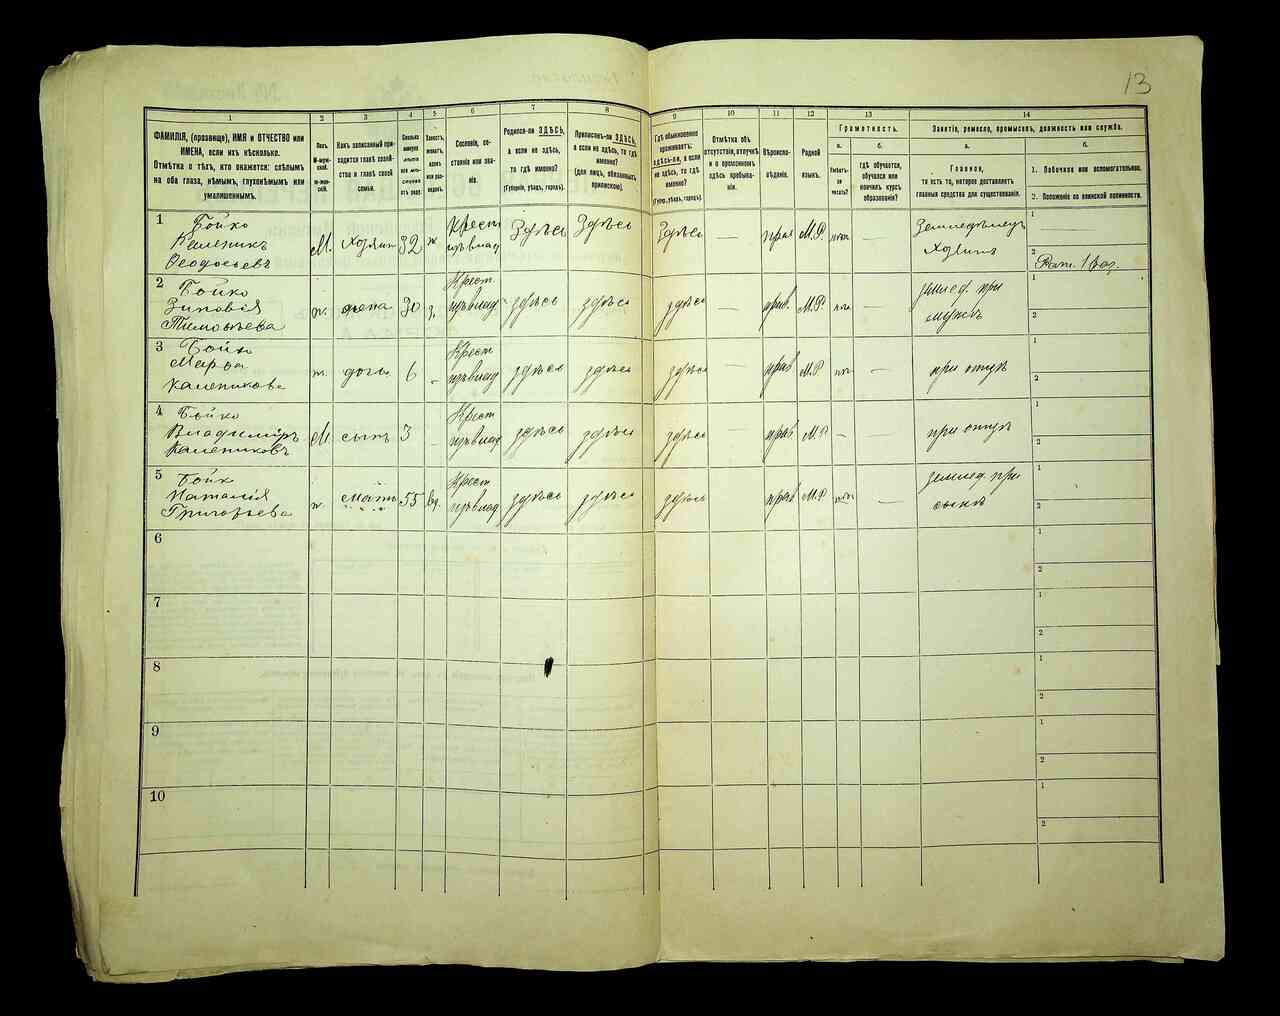 13
1
2
3
4
5
6
7
8
9
10
11
12
13
14
ФАМИЛІЯ, (прозвище), ИМЯ и ОТЧЕСТВО или
ИМЕНА, если ихъ нѣсколько.
Отмѣтка о тѣхъ, кто окажется: слѣпымъ
на оба глаза, нѣмымъ, глухонѣмымъ или
умалишеннымъ.
Полъ.
М-мужской.
ж-женскій.
Какъ записанный приходится главѣ хозяйства и главѣ своей
семьи.
Сколько
минуло
лѣтъ
или мѣсяцевъ
отъ роду.
Холостъ,
женатъ,
вдовъ
или разведенъ.
Сословіе, состояніе или званіе.
Родился-ли ЗДѢСЬ,
а если не здѣсь,
то гдѣ именно?
(Губернія, уѣздъ, городъ).
Приписанъ-ли ЗДѢСЬ,
а если не здѣсь, то гдѣ
именно?
(для лицъ, обязанныхъ
припискою).
Гдѣ обыкновенно
проживаетъ:
здѣсь-ли, а если
не здѣсь, то гдѣ
именно?
(Губер., уѣздъ, городъ).
Отмѣтка объ
отсутствіи, отлучкѣ
и о временномъ
здѣсь пребываніи.
Вѣроисповѣданіе.
Родной
языкъ.
Грамотность.
а.
Умѣетъ-ли
читать?
б.
гдѣ обучается,
обучался или
кончилъ курсъ
образованія?
Занятіе, ремесло, промыселъ, должность или служба.
а.
Главное,
то есть то, которое доставляетъ
главныя средства для существованія.
б.
1. Побочное или вспомогательное.
2. Положеніе по воинской повинности.
1
Бойко
Каленикъ
Феодосьевъ
М.
Хозяин
32
ж
Крест
Здѣсь
Здѣсь
Здѣсь
—
прав
М.Р.
—
Земледѣлец
Хозяинъ
1
2
Рат. 1 раз.
2
Бойко
Зиновія
Тимофѣева
ж.
жена
30
з.
Крест.
здѣсь
здѣсь
здѣсь
—
прав.
М.Р.
—
землед. при
мужѣ
1
2
3
Бойко
Марфа
Каленикова
ж.
дочь
6
-
Крест
здѣсь
здѣсь
здѣсь
—
прав
М.Р.
—
при отцѣ
1
2
4
Бойко
Владиміръ
Калениковъ
М
сынъ
3
-
Крест
здѣсь
здѣсь
здѣсь
прав
М.Р
-
—
при отцѣ
1
2
5
Бойко
Наталія
Григорьева
ж.
мать
55
вд.
Крест
здѣсь
здѣсь
здѣсь
прав
М.Р.
—
землед. при
сынѣ
1
2
6
1
2
7
1
2
8
1
2
9
1
2
10
1
2